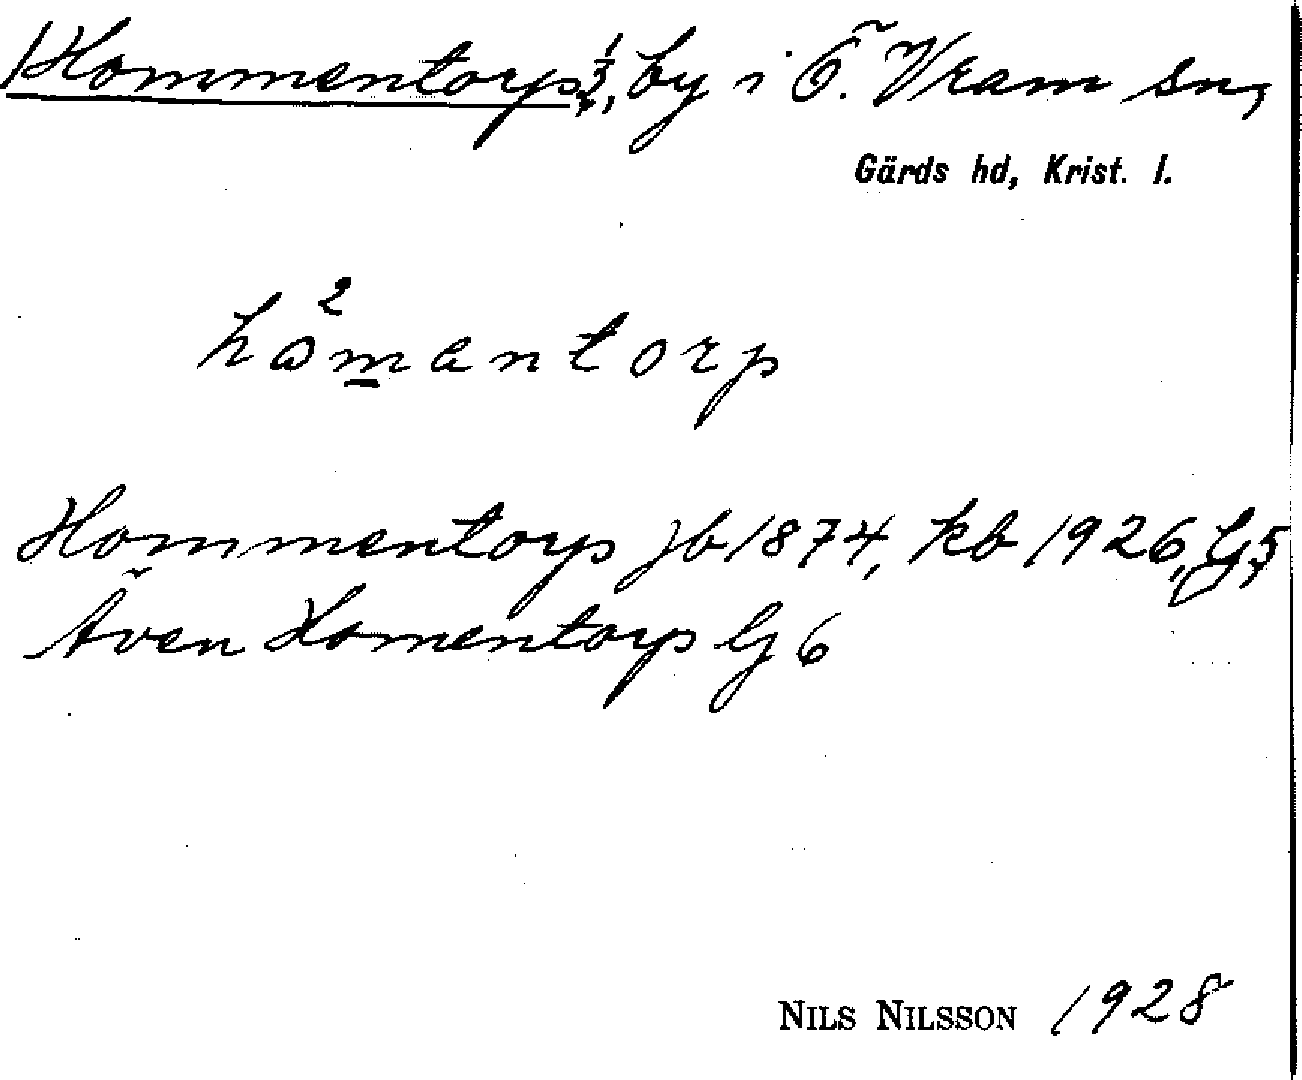 Hommentorp, by i Ö. Vram sn,
Gärds hd, Krist. l.
håmantorp
Hommentorp jb 1874, kb 1926, G 5
Även Homentorp G 6
NILS NILSSON 1928